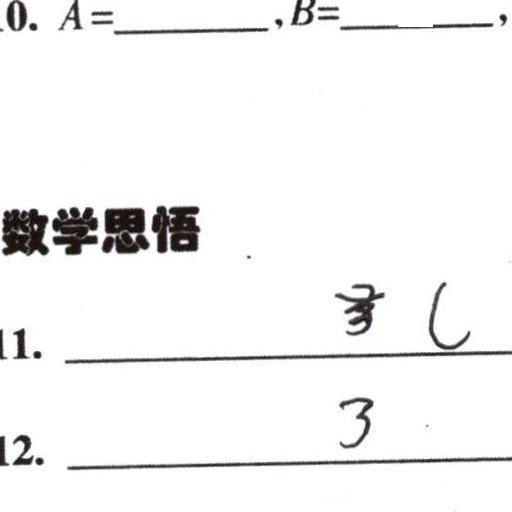 0. A=________, B=________,
数学思悟
11. ________
12. 3